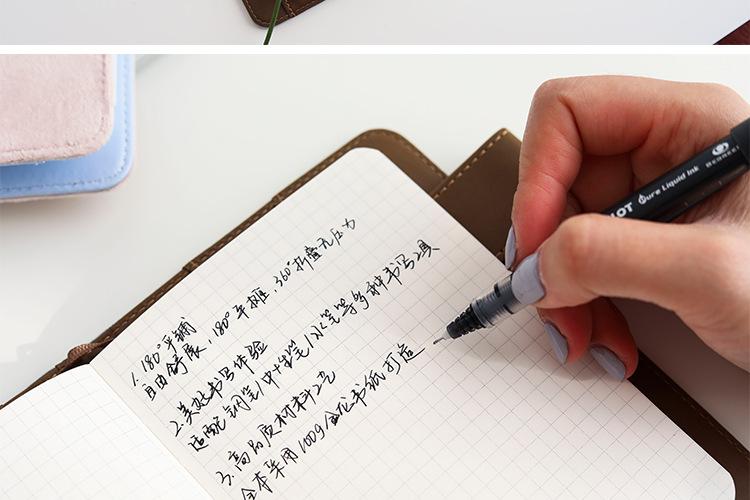 1.180°平铺
自由舒展，180°平摊，360°折叠无压力
2.美好书写体验
适配钢笔/中性笔/水笔等多种书写工具
3.高品质材料工艺
全本采用100g金龙书纸打造
Pure Liquid Ink